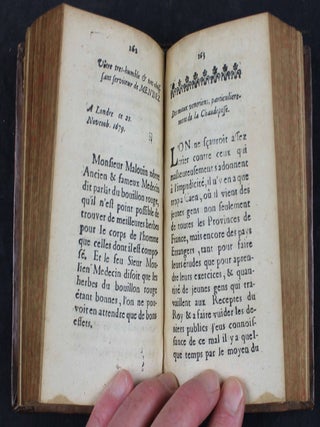 162
Vôtre tres-humble & tres-obeïs-
sant serviteur de MENDEZ.
A Londre ce 22.
Novemb. 1679.
Monsieur Malouin nôtre
Ancien & fameux Medecin
dit parlãt du bouillon rouge,
qu'il n'est point possible de
trouver de meilleures herbes
pour le corps de l'homme
que celles dont il est compo-
sé. Et le feu Sieur Mou-
lien Medecin disoit que les
herbes du bouillon rouge
étant bonnes, l'on ne pou-
voit en attendre que de bons
effets.
163
Des maux veneriens, particuliere-
ment de la Chaudepisse.
L'ON ne sçauroit assez
crier contre ceux qui
malheureusement s'adonnent
à l'impudicité, il n'y a que
trop à Caen, où il vient des
jeunes gens non seulement
de toutes les Provinces de
France, mais encore des pays
Etrangers, tant pour faire
leurs études que pour apren-
dre leurs exercices, & quan-
tité de jeunes gens qui tra-
vaillent aux Receptes du
Roy & a faire vuider les de-
niers publics j'eus connois-
sance de ce mal il y a quel-
que temps par le moyen du